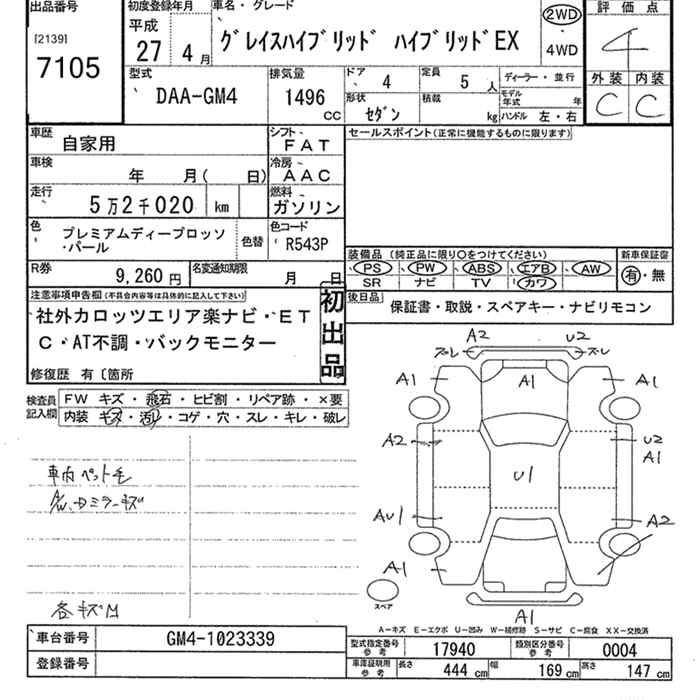 出品番号
[2139]
7105
初度登録年月
平成
27 4 月
車名・グレード
グレイスハイブリッド ハイブリッドEX
2WD
4WD
評価点
4
外装 内装
C C
型式
DAA-GM4
排気量
1496
CC
ドア 4
定員 5 人
ディーラー・並行
形状
セダン
積載
kg
モデル年式 年
ハンドル 左・右
車歴
自家用
シフト
FAT
セールスポイント(正常に機能するものに限ります)
車検
年 月( 日)
冷房
AAC
走行
5万2千020 km
燃料
ガソリン
色
プレミアムディープロッソ
・パール
色替
色コード
R543P
R券
9,260 円
名変通知期限
月 日
装備品 (純正品に限り○をつけてください)
PS PW ABS エアB AW
SR ナビ TV カワ
新車保証書
有・無
注意事項申告欄(不具合内容等は具体的に記入して下さい)
社外カロッツエリア楽ナビ・ET
C・AT不調・バックモニター
初出品
修復歴 有〔箇所
後日品
保証書・取説・スペアキー・ナビリモコン
検査員記入欄
FW キズ・飛石・ヒビ割・リペア跡・×要
内装 キズ・汚れ・コゲ・穴・スレ・キレ・破レ
車内ペット毛
各キズM
A2 U2
ズレ ズレ
A1 A1 A1
A2 U2
A1
U1
AU1 A2
A1
スペア
A1
A-キズ E-エクボ U-凹み W-補修跡 S-サビ C-腐食 XX-交換済
車台番号
GM4-1023339
登録番号
型式指定番号
参考
17940
類別区分番号
参考
0004
車庫証明用
参考
長さ 444 cm
幅 169 cm
高さ 147 cm